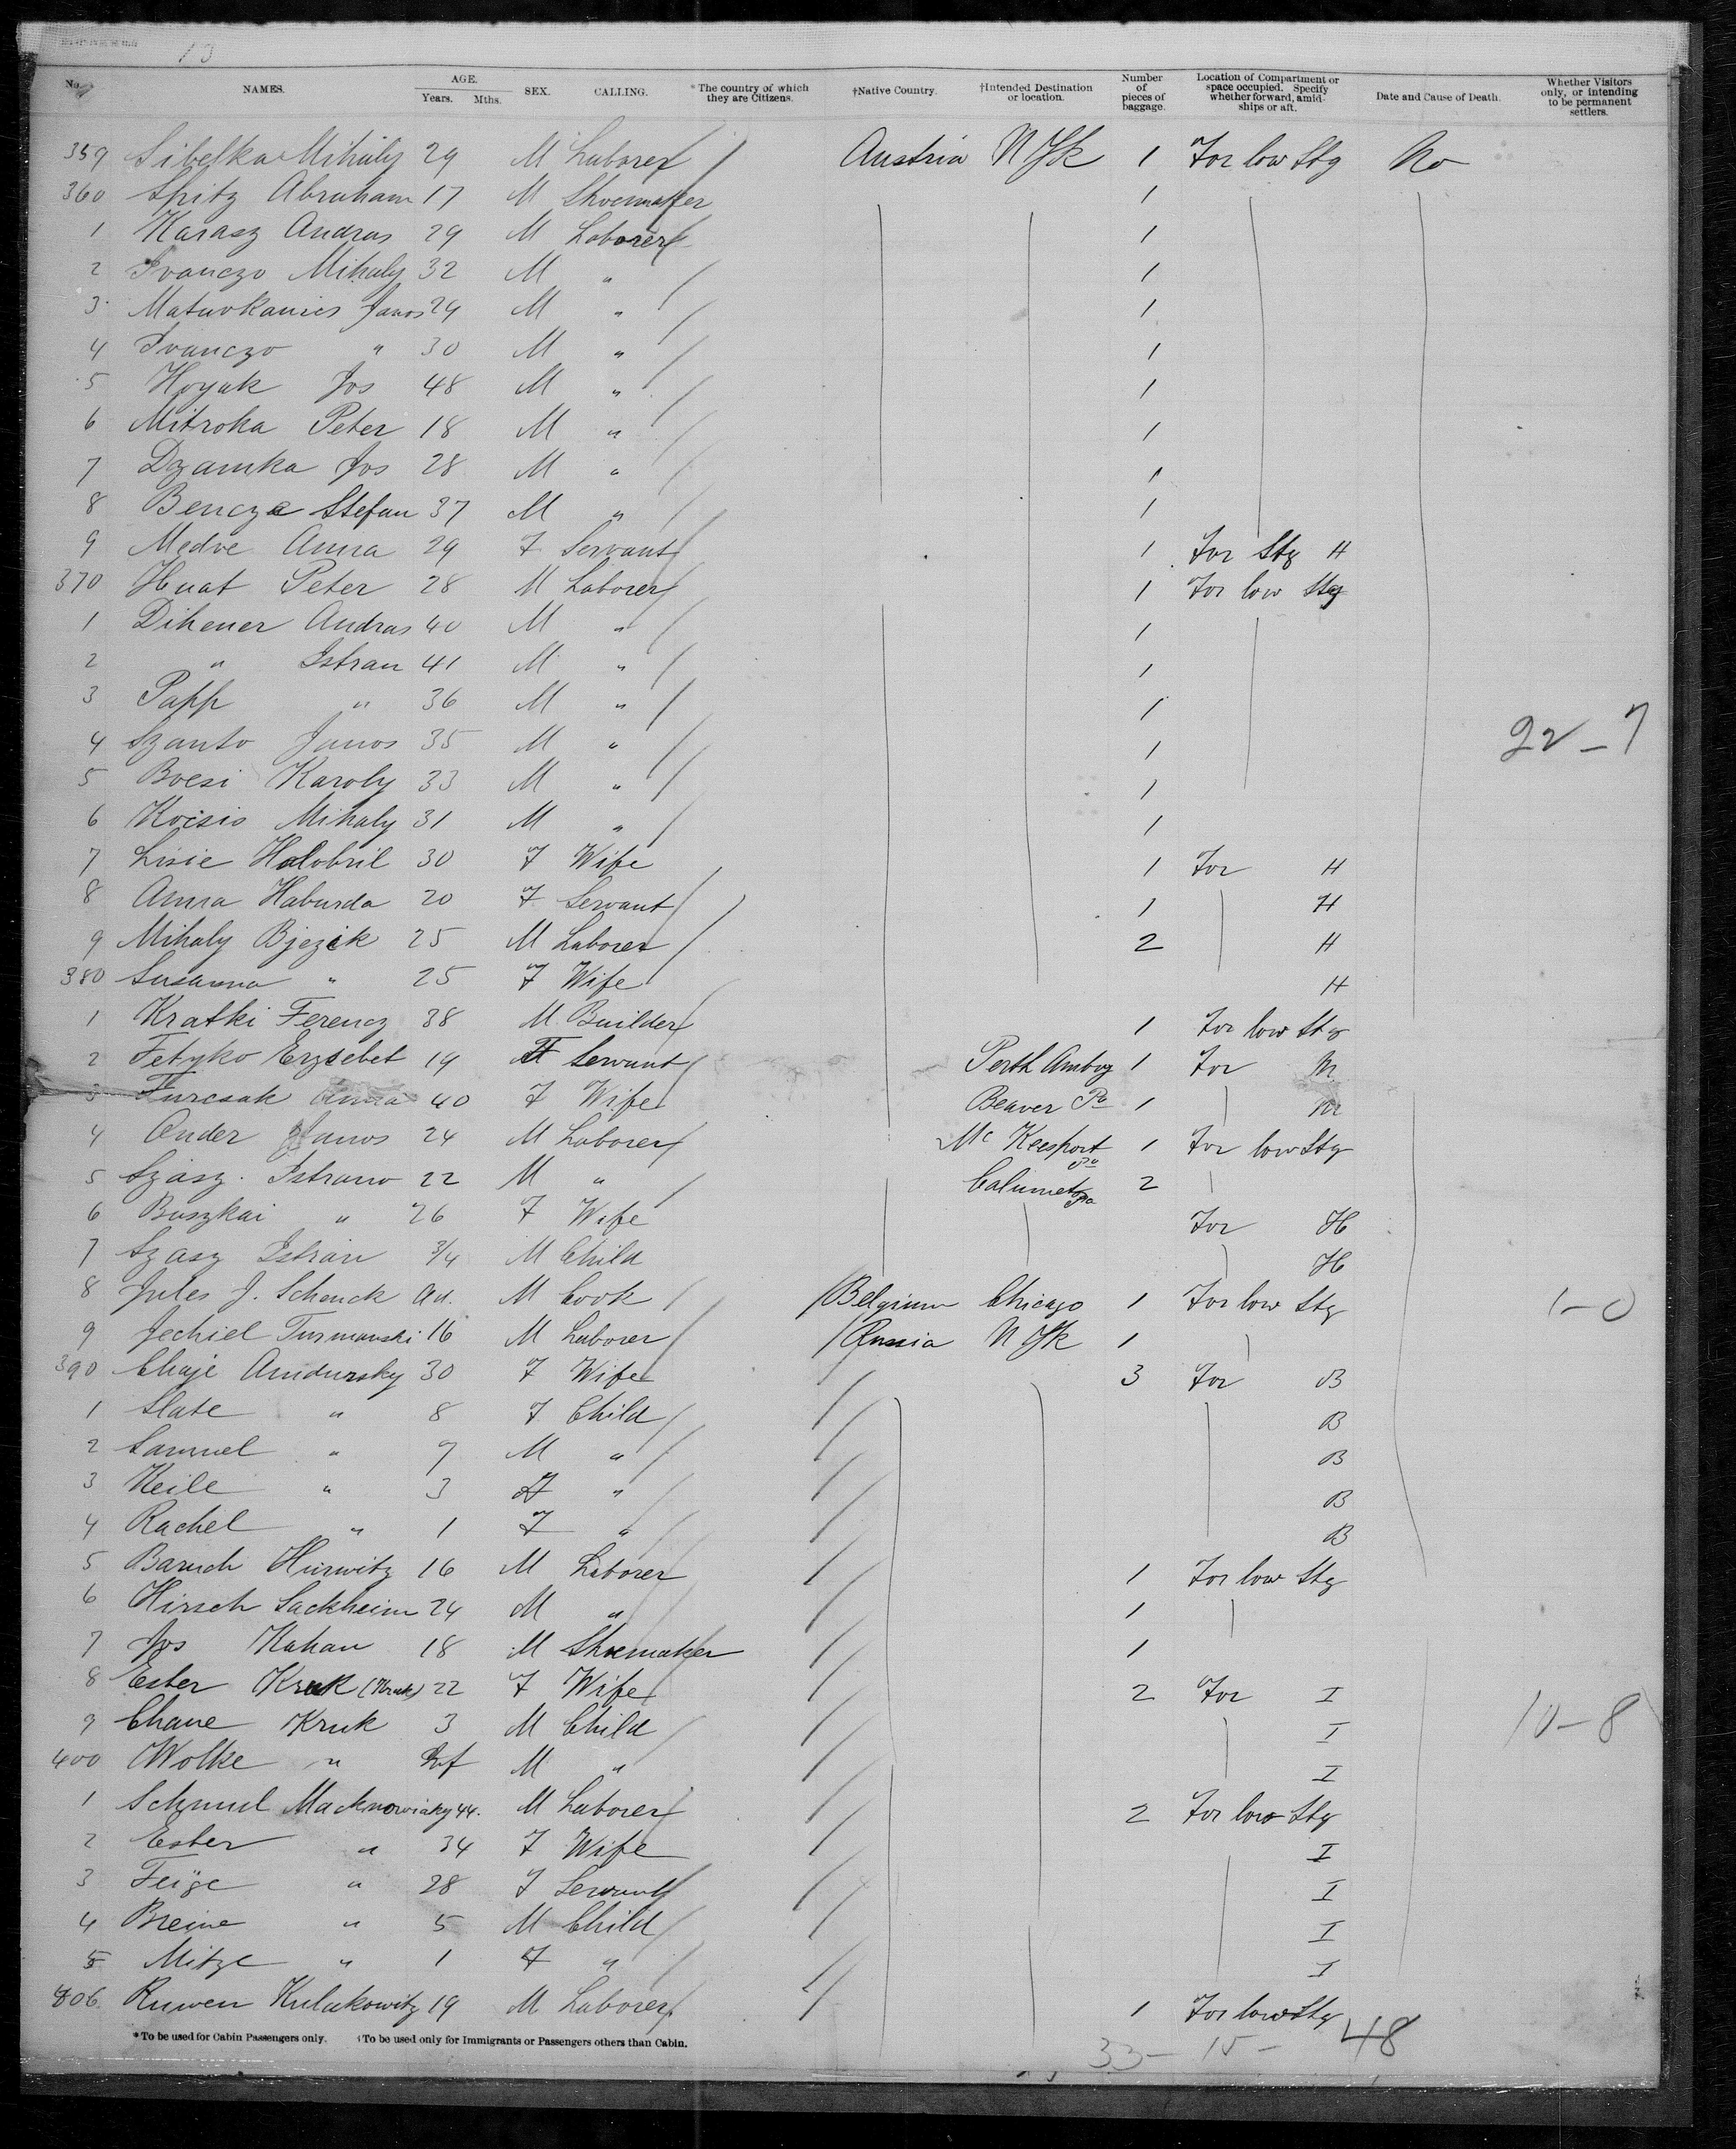 13
No. NAMES. AGE. Years. Mths. SEX. CALLING. *The country of which they are Citizens. †Native Country. †Intended Destination or location. Number of pieces of baggage. Location of Compartment or space occupied. Specify whether forward, amidships or aft. Date and Cause of Death. Whether Visitors only, or intending to be permanent settlers.
359 Sibelka Mihaly 29 M Laborer Austria N Yk 1 For low Stg No
360 Spitz Abraham 17 M Shoemaker 1
1 Karasz Andras 29 M Laborer 1
2 Ivanczo Mihaly 32 M " 1
3 Matuvkanics Janos 29 M " 1
4 Ivanczo " 30 M " 1
5 Hoyak Jos 48 M " 1
6 Mitroka Peter 18 M " 1
7 Dzamka Jos 28 M " 1
8 Bencze Stefan 37 M " 1
9 Medve Anna 29 F Servant 1 For Stg H
370 Huat Peter 28 M Laborer 1 For low Stg
1 Dihener Andras 40 M " 1
2 " Istvan 41 M " 1
3 Papp " 36 M " 1
4 Szanto Janos 35 M " 1 22 - 7
5 Bocsi Karoly 33 M " 1
6 Kocsis Mihaly 31 M " 1
7 Lisie Halobril 30 F Wife 1 For H
8 Anna Haburda 20 F Servant 1 H
9 Mihaly Bjezik 25 M Laborer 2 H
380 Susanna " 25 F Wife H
1 Kratki Ferencz 38 M Builder 1 For low Stg
2 Fetyko Erzsebet 19 F Servant Perth Amboy 1 For M
3 Furcsak Anna 40 F Wife Beaver Pa 1 M
4 Onder Janos 24 M Laborer Mc Keesport Pa 1 For low Stg
5 Szasz Istvan 22 M " Calumet Pa 2
6 Buszkai " 26 F Wife For H
7 Szasz Istvan 3/4 M Child H
8 Jules J. Schenck Ad. M Cook Belgium Chicago 1 For low Stg 1 - 0
9 Jechiel Turmanski 16 M Laborer Russia N Yk 1
390 Chaje Amdursky 30 F Wife 3 For B
1 Slate " 8 F Child B
2 Samuel " 7 M " B
3 Keile " 3 F " B
4 Rachel " 1 F " B
5 Baruch Hurwitz 16 M Laborer 1 For low Stg
6 Hirsch Sackheim 24 M " 1
7 Jos Kahan 18 M Shoemaker 1
8 Ester Kruk (Kruk) 22 F Wife 2 For I
9 Chane Kruk 3 M Child I 10 - 8
400 Wolke " Inf M " I
1 Schmul Macknowiaky 44. M Laborer 2 For low Stg
2 Ester " 34 F Wife I
3 Feige " 28 F Servant I
4 Breine " 5 M Child I
5 Mitze " 1 F " I
406 Ruwen Kulakowitz 19 M Laborer 1 For low Stg
*To be used for Cabin Passengers only. †To be used only for Immigrants or Passengers others than Cabin.
33 - 15 - 48